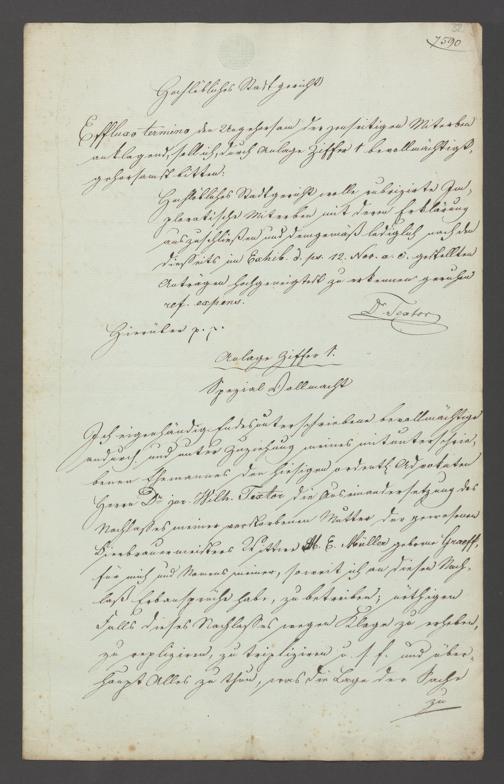 7590
Hochlöbliches Stadtgericht
Effluxo termino den Ungehorsam der jenseitigen Miterben
anklagend, soll ich, durch Anlage Ziffer 1 bevollmächtigt,
gehorsamst bitten:
Hochlöbliches Stadtgericht wolle rubrizirte Im-
ploratische Miterben mit deren Erklärung
auszuschließen und demgemäß lediglich nach den
diesseits im Exhib. d. pr. 12. Nov. a. c. gestellten
Anträgen hochgeneigtest zu erkennen geruhen
ref. expens.
Hierüber p. p.
Dr Textor
Anlage Ziffer 1.
Spezial Vollmacht
Ich eigenhändig Endesunterschriebene bevollmächtige
andurch und unter Zuziehung meines mitunterschrie-
benen Ehemannes den hiesigen ordentl. Advokaten
Herrn Dr jur. Wilh. Textor die Auseinandersetzung des
Nachlasses meiner verstorbenen Mutter der gewesenen
Bierbrauermeisters Wittwe M. E. Müller geborne Graeff,
für mich und Namens meiner, soweit ich an diesen Nach-
laß Erbansprüche habe, zu betreiben; nöthigen
Falls dieses Nachlasses wegen Klage zu erheben,
zu repliziren, zu tripliziren u. s. f. und über-
haupt Alles zu thun, was die Lage der Sache
zu